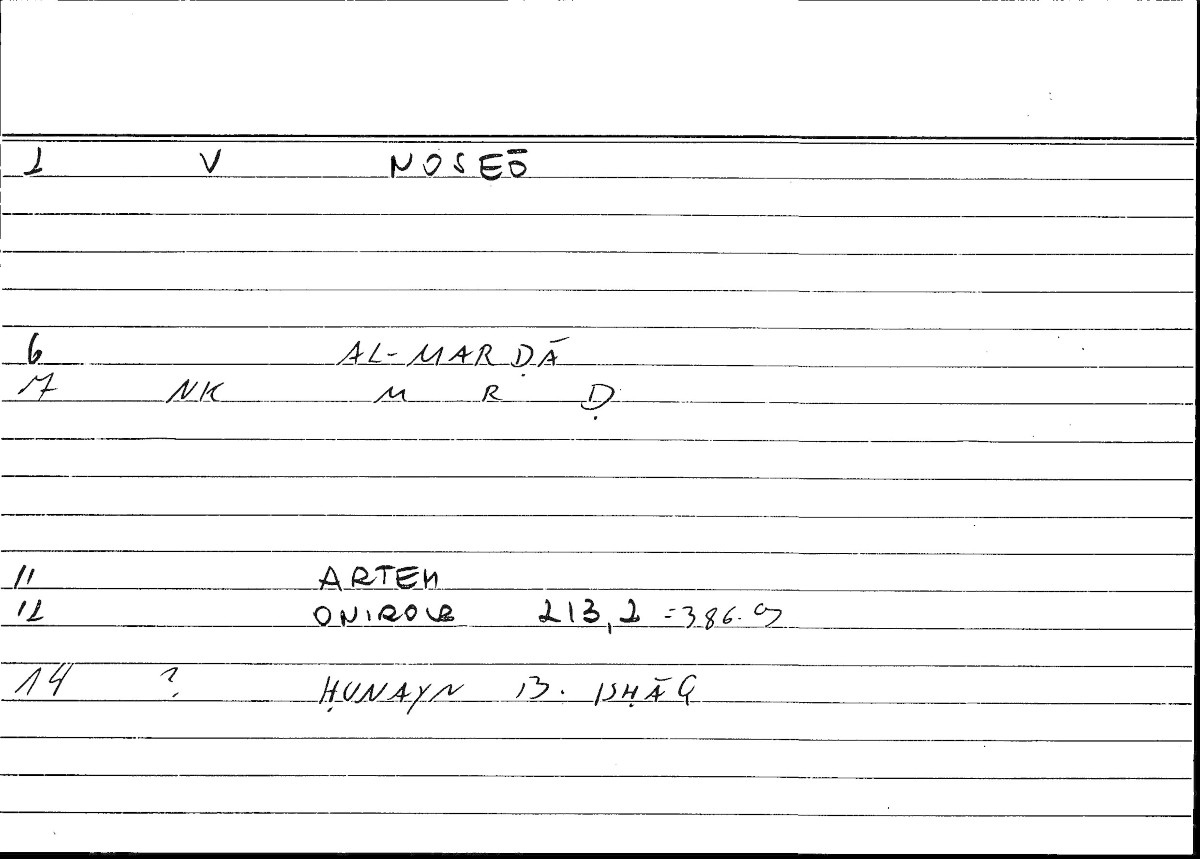 1 V NOSEŌ
6 AL-MARḌĀ
7 NK M R Ḍ
11 ARTEM
12 ONIROCR 213,2 =386.9
14 ? ḤUNAYN B. ISḤĀQ